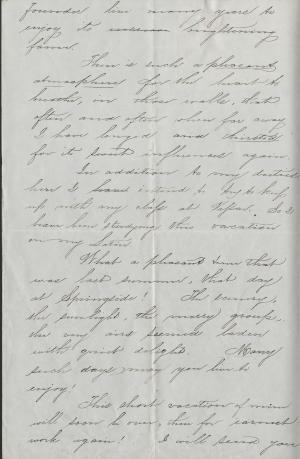 Founder live many years to
enjoy its brightening
fame.
There is such a pleasant
atmosphere for the heart to
breathe, in those walls, that
often and often when far away
I have longed and thirsted
for its sweet influences again.
In addition to my duties
here I have intend to try to keep
up with my class at Vassar. So I
have been studying this vacation
on my Latin.
What a pleasant time that
was last summer, that day
at Springside! The scenery,
the sunlight, the merry group,
the very airs seemed laden
with quiet delight. Many
such days may you live to
enjoy!
This short vacation of mine
will soon be over, then for earnest
work again! I will send you